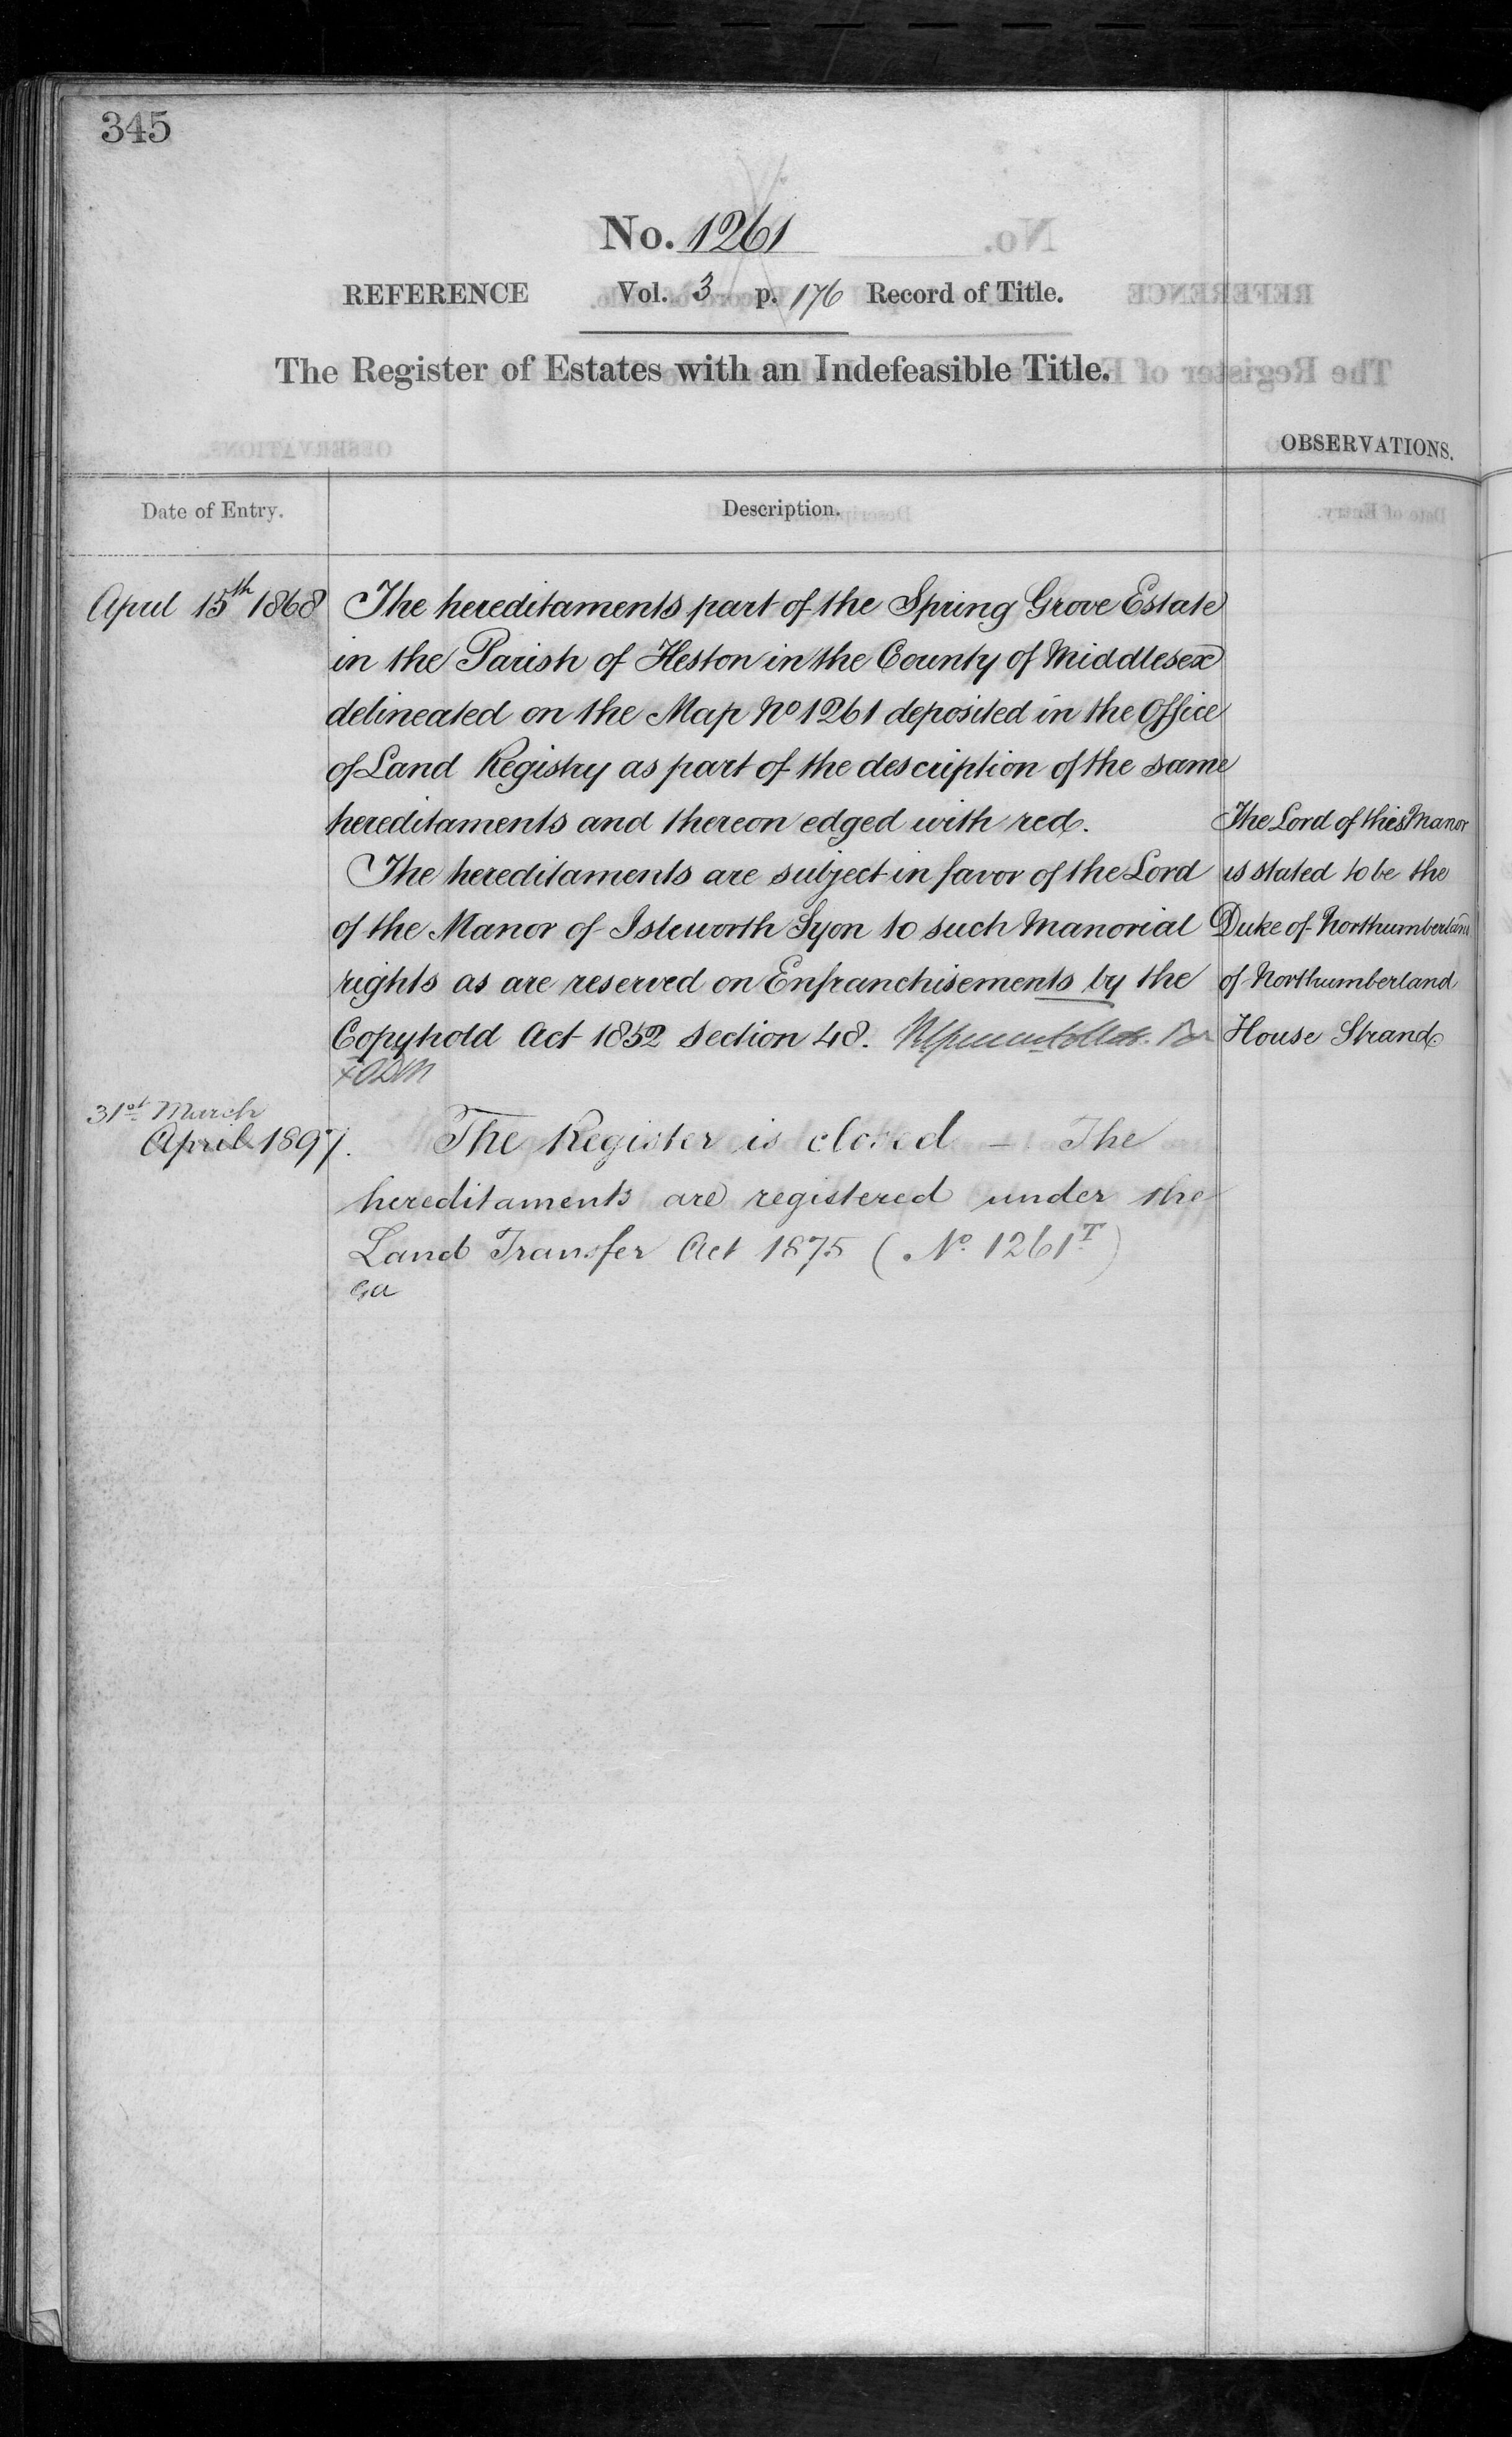 345
No. 1261
REFERENCE Vol. 3 p. 176 Record of Title.
The Register of Estates with an Indefeasible Title.
OBSERVATIONS.
Date of Entry. Description.
April 15th 1868 The hereditaments part of the Spring Grove Estate
in the Parish of Heston in the County of Middlesex
delineated on the Map No 1261 deposited in the Office
of Land Registry as part of the description of the same
hereditaments and thereon edged with red.
The hereditaments are subject in favor of the Lord
of the Manor of Isleworth Syon to such Manorial
rights as are reserved on Enfranchisements by the
Copyhold Act 1852 section 48.
The Lord of this Manor
is stated to be the
Duke of Northumberland
of Northumberland
House Strand
31st March
April 1897. The Register is closed – The
hereditaments are registered under the
Land Transfer Act 1875 (No. 1261T)